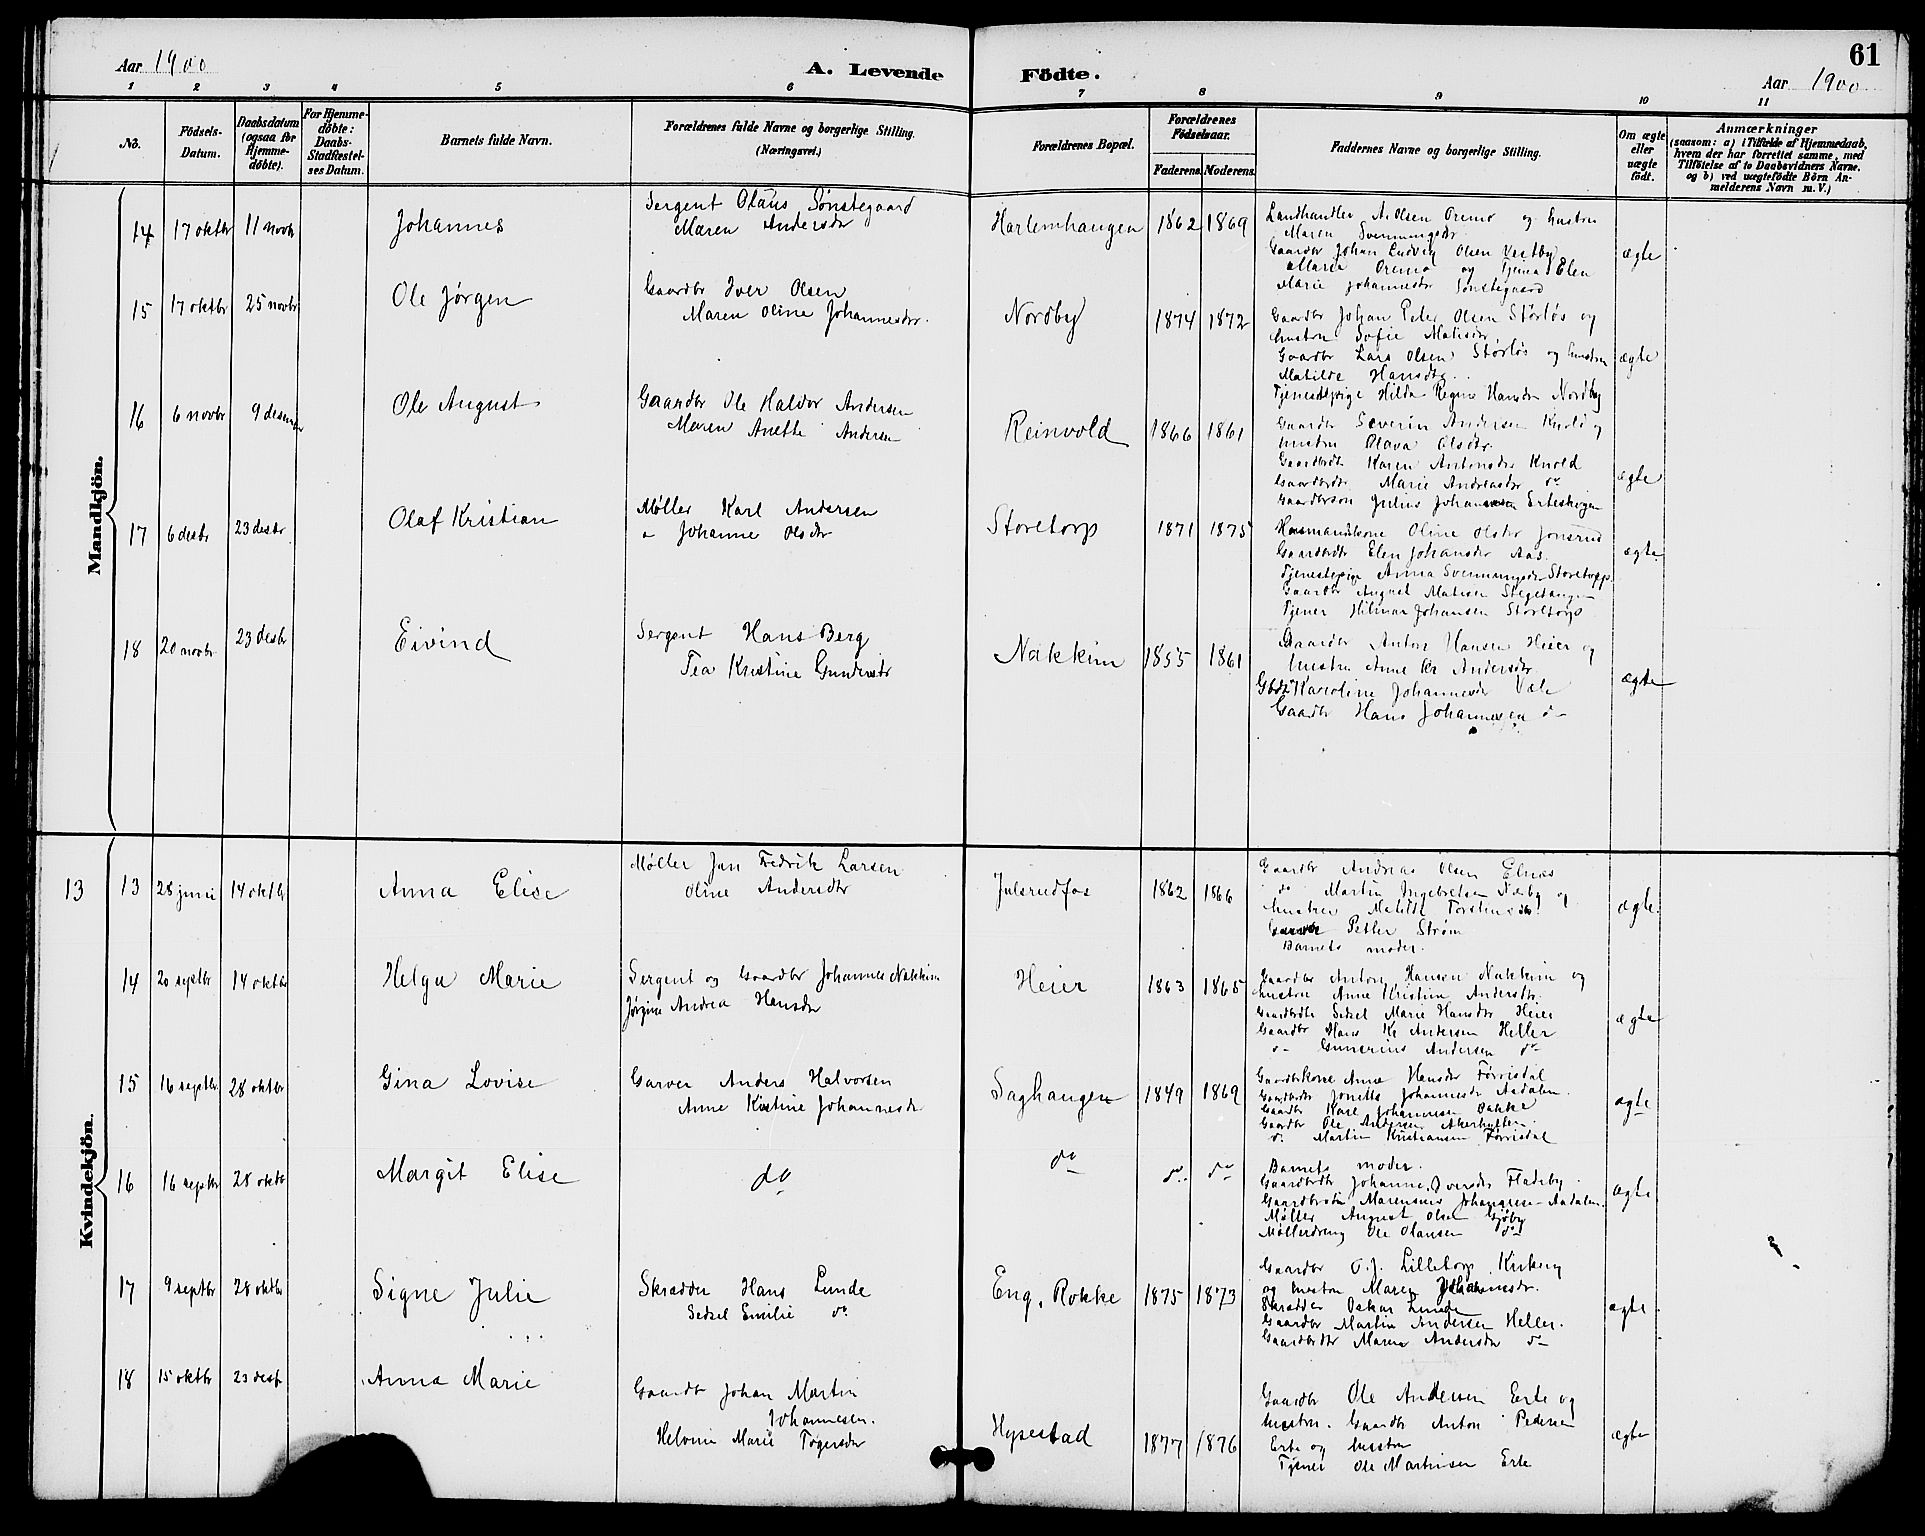 61
Aar 1900
A. Levende Födte.
Aar 1900
1 2 3 4 5 6 7 8 9 10 11
No.
Födsels-
Datum.
Daabsdatum
(ogsaa for
Hjemme-
døbte).
For Hjemme-
døbte:
Daabs-
Stadfæstel-
ses Datum.
Barnets fulde Navn.
Forældrenes fulde Navne og borgerlige Stilling.
(Næringsvei.)
Forældrenes Bopæl.
Forældrenes
Fødselsaar.
Faderens. Moderens.
Faddernes Navne og borgerlige Stilling.
Om ægte
eller
uægte
født.
Anmærkninger
(saasom: a) i Tilfælde af Hjemmedaab,
hvem der har forrettet samme, med
Tilføielse af to Daabsvidners Navne.
og b) ved uægtefødte Børn An-
melderens Navn m. V.)
Mandkjön.
14 17 oktbr 11 novbr Johannes
Sergent Olaus Sønstegaard
Maren Andersdr
Harlemhaugen 1862 1869
Landhandler A. Olsen Oremo og hustru
Maren Svenningsdr
Gaardbr Johan Ludvig Olsen Vestby
Maria Oremo og Tjener Elen
Marie Johannesdr Sønstegaard
ægte
15 17 oktbr 25 novbr Ole Jørgen
Gaardbr Iver Olsen
Maren Oline Johannesdr.
Nordby 1874 1872
Gaardbr Johan Peter Olsen Størløs og
hustru Sofie Matisdr
Gaardbr Lars Olsen Størløs og hustru
Matilde Hansdtr.
Tjenestepige Hilda Regine Hansdr Nordby
ægte
16 6 novbr 9 desember Ole August
Gaardbr Ole Haldor Andersen
Maren Anette Andersen
Reinvold 1866 1861
Gaardbr Severin Andersen Knold og
hustru Olava Olsdtr
Gaardbrdtr Karen Antonsdr Knold
Gaardbrdtr Marie Andreasdr do
Gaardbrsøn Julius Johannesen Erteskogen
ægte
17 6 desbr 23 desbr Olaf Kristian
Møller Karl Andersen
Johanne Olsdr
Storetorp 1871 1875
Husmandskone Oline Olsdr Jonsrud
Gaardbrdtr Elen Johansdr Aas.
Tjenestepige Anna Svenningsdr Storetorp.
Gaardbr August Matisen Stegetangen
Tjener Hilmar Johansen Storetorp
ægte
18 20 novbr 23 desbr Eivind
Sergent Hans Berg
Tea Kristine Gundersdr
Nakkim 1855 1861
Gaardbr Anton Hansen Heier og
hustru Anne Kr Andersdtr
Gbdtr Karoline Johannesdr Væle
Gaardbr Hans Johannesen do
ægte
Kvindekjön.
13
13 28 juni 14 oktbr Anna Elise
Møller Jan Fredrik Larsen
Oline Andersdtr
Julsrudfos 1862 1866
Gaardbr Andreas Olsen Elnæs
do Martin Ingebretsen Næsby og
hustru Matilde Torstensdtr
Gaardbr Petter Strøm
Barnets moder.
ægte.
14 20 septbr 14 oktbr Helga Marie
Sergent og Gaardbr Johannes Nakkim
Jørgine Andrea Hansdr
Heier 1863 1865
Gaardbr Anton Hansen Nakkim og
hustru Anne Kristine Andersdtr.
Gaardbrdtr Sedsel Marie Hansdtr Heier
Gaardbr Hans Kr Andersen Heller
do Gunerius Andersen do
ægte
15 16 septbr 28 oktbr Gina Lovise
Garver Anders Halvorsen
Anne Kristine Johannesdr
Saghaugen 1849 1869
Gaardbrkone Anne Hansdr Førrisdal
Gaardbrdtr Jonetta Johannesdr Aadalen.
Gaardbr Karl Johannesen Bakke
Gaardbr Ole Andersen Akerhytten
do Martin Kristiansen Førrisdal
ægte
16 16 septbr 28 oktbr Margit Elise
do
do do do
Barnets moder.
Gaardbrdtr Johanne Iversdr Fladeby
Gaardbrsøn Marensius Johannesen Aadalen.
Møller August Olsen Gjøby
Møllerdreng Ole Olausen do
ægte
17 9 septbr 28 oktbr Signe Julie
Skrædder Hans Lunde
Sedsel Emilie do
Eng, Rokke 1875 1873
Gaardbr O. J. Lilletorp Kirkeng
og hustru Maren Johannesdr.
Skrædder Oskar Lunde
Gaardbr Martin Andersen Heller.
Gaardbrdtr Maren Andersdtr do
ægte
18 15 oktbr 23 desbr Anna Marie
Gaardbr Johan Martin
Johannesen.
Helvine Marie Tøgersdr
Hypestad 1877 1876
Gaardbr Ole Andersen Erte og
hustru. Gaardbr Anton Pedersen
Erte og hustru
Tjener Ole Martinsen Erte
ægte